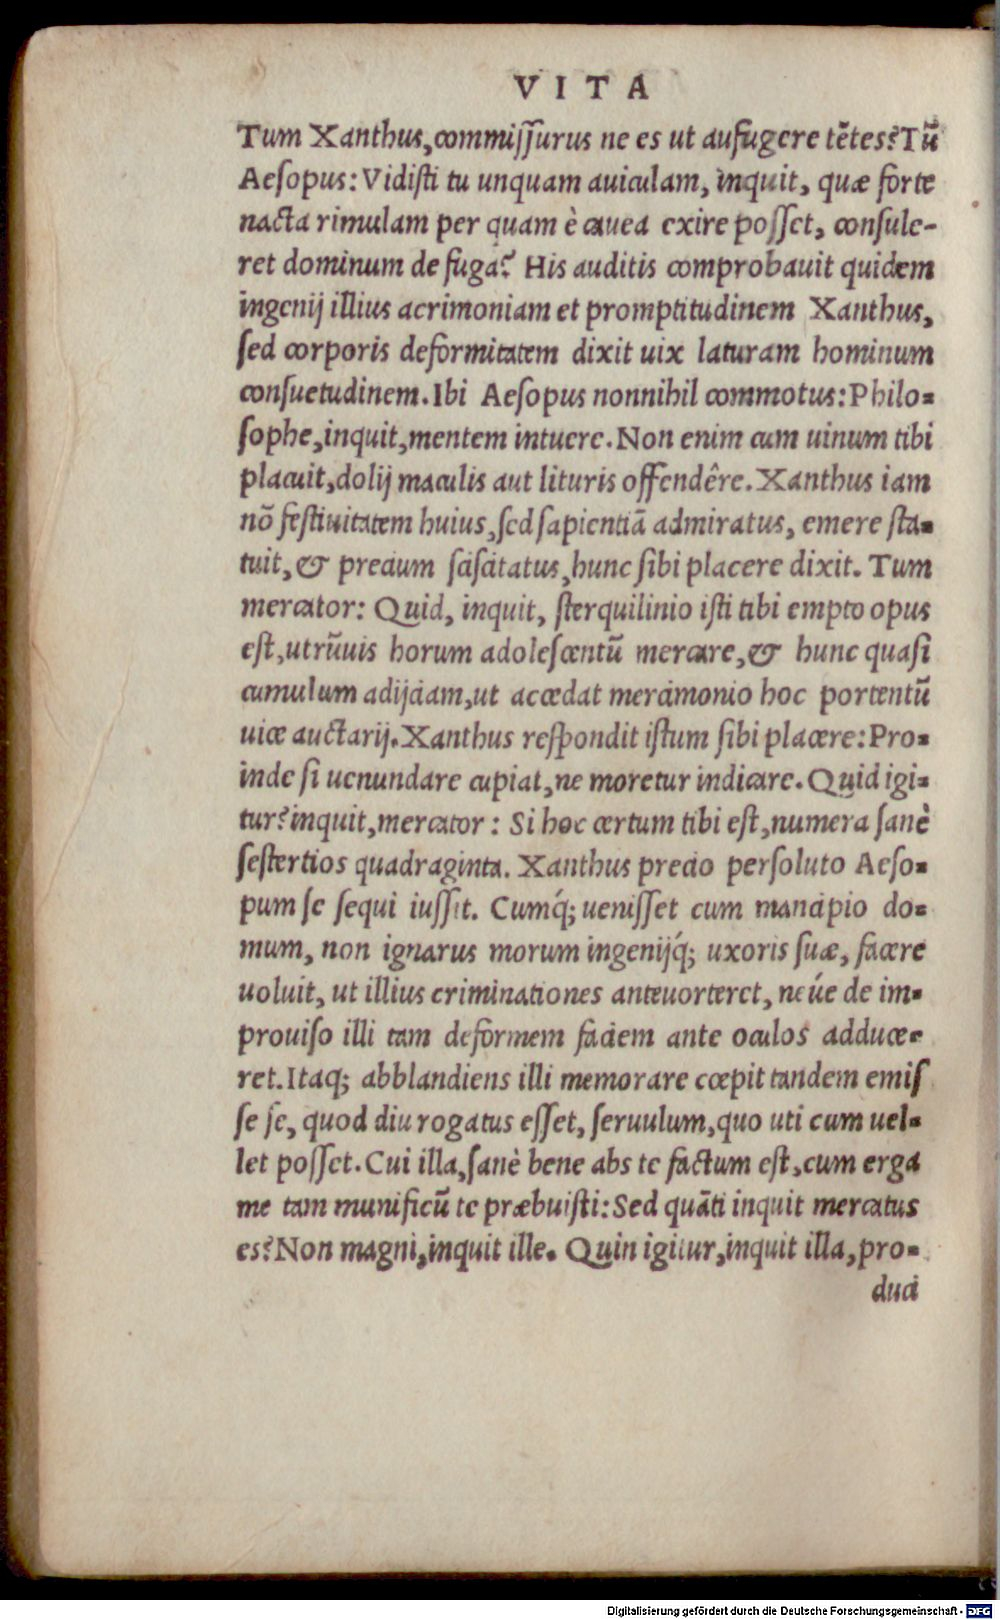 VITA
Tum Xanthus, commiſſurus ne es ut aufugere tẽtes? Tũ
Aeſopus: Vidiſti tu unquam auiculam, inquit, quæ forte
nacta rimulam per quam è cauea exire poſſet, conſule-
ret dominum de fuga? His auditis comprobauit quidem
ingenij illius acrimoniam et promptitudinem Xanthus,
ſed corporis deformitatem dixit uix laturam hominum
conſuetudinem. Ibi Aeſopus nonnihil commotus: Philo-
ſophe, inquit, mentem intuere. Non enim cum uinum tibi
placuit, dolij maculis aut lituris offendêre. Xanthus iam
nõ feſtiuitatem huius, ſed ſapientiã admiratus, emere ſta-
tuit, & precium ſciſcitatus, hunc ſibi placere dixit. Tum
mercator: Quid, inquit, ſterquilinio iſti tibi empto opus
eſt, utrũuis horum adoleſcentũ mercare, & hunc quaſi
cumulum adijciam, ut accedat mercimonio hoc portentũ
uice auctarij. Xanthus reſpondit iſtum ſibi placere: Pro-
inde ſi uenundare cupiat, ne moretur indicare. Quid igi-
tur? inquit, mercator: Si hoc certum tibi eſt, numera ſanè
ſeſtertios quadraginta. Xanthus precio perſoluto Aeſo-
pum ſe ſequi iuſſit. Cumq́; ueniſſet cum mancipio do-
mum, non ignarus morum ingenijq́; uxoris ſuæ, facere
uoluit, ut illius criminationes anteuorteret, neúe de im-
prouiſo illi tam deformem faciem ante oculos adduce-
ret. Itaq; abblandiens illi memorare cœpit tandem emiſ
ſe ſe, quod diu rogatus eſſet, ſeruulum, quo uti cum uel-
let poſſet. Cui illa, ſanè bene abs te factum eſt, cum erga
me tam munificũ te præbuiſti: Sed quãti inquit mercatus
es? Non magni, inquit ille. Quin igitur, inquit illa, pro-
duci
Digitalisierung gefördert durch die Deutsche Forschungsgemeinschaft - DFG